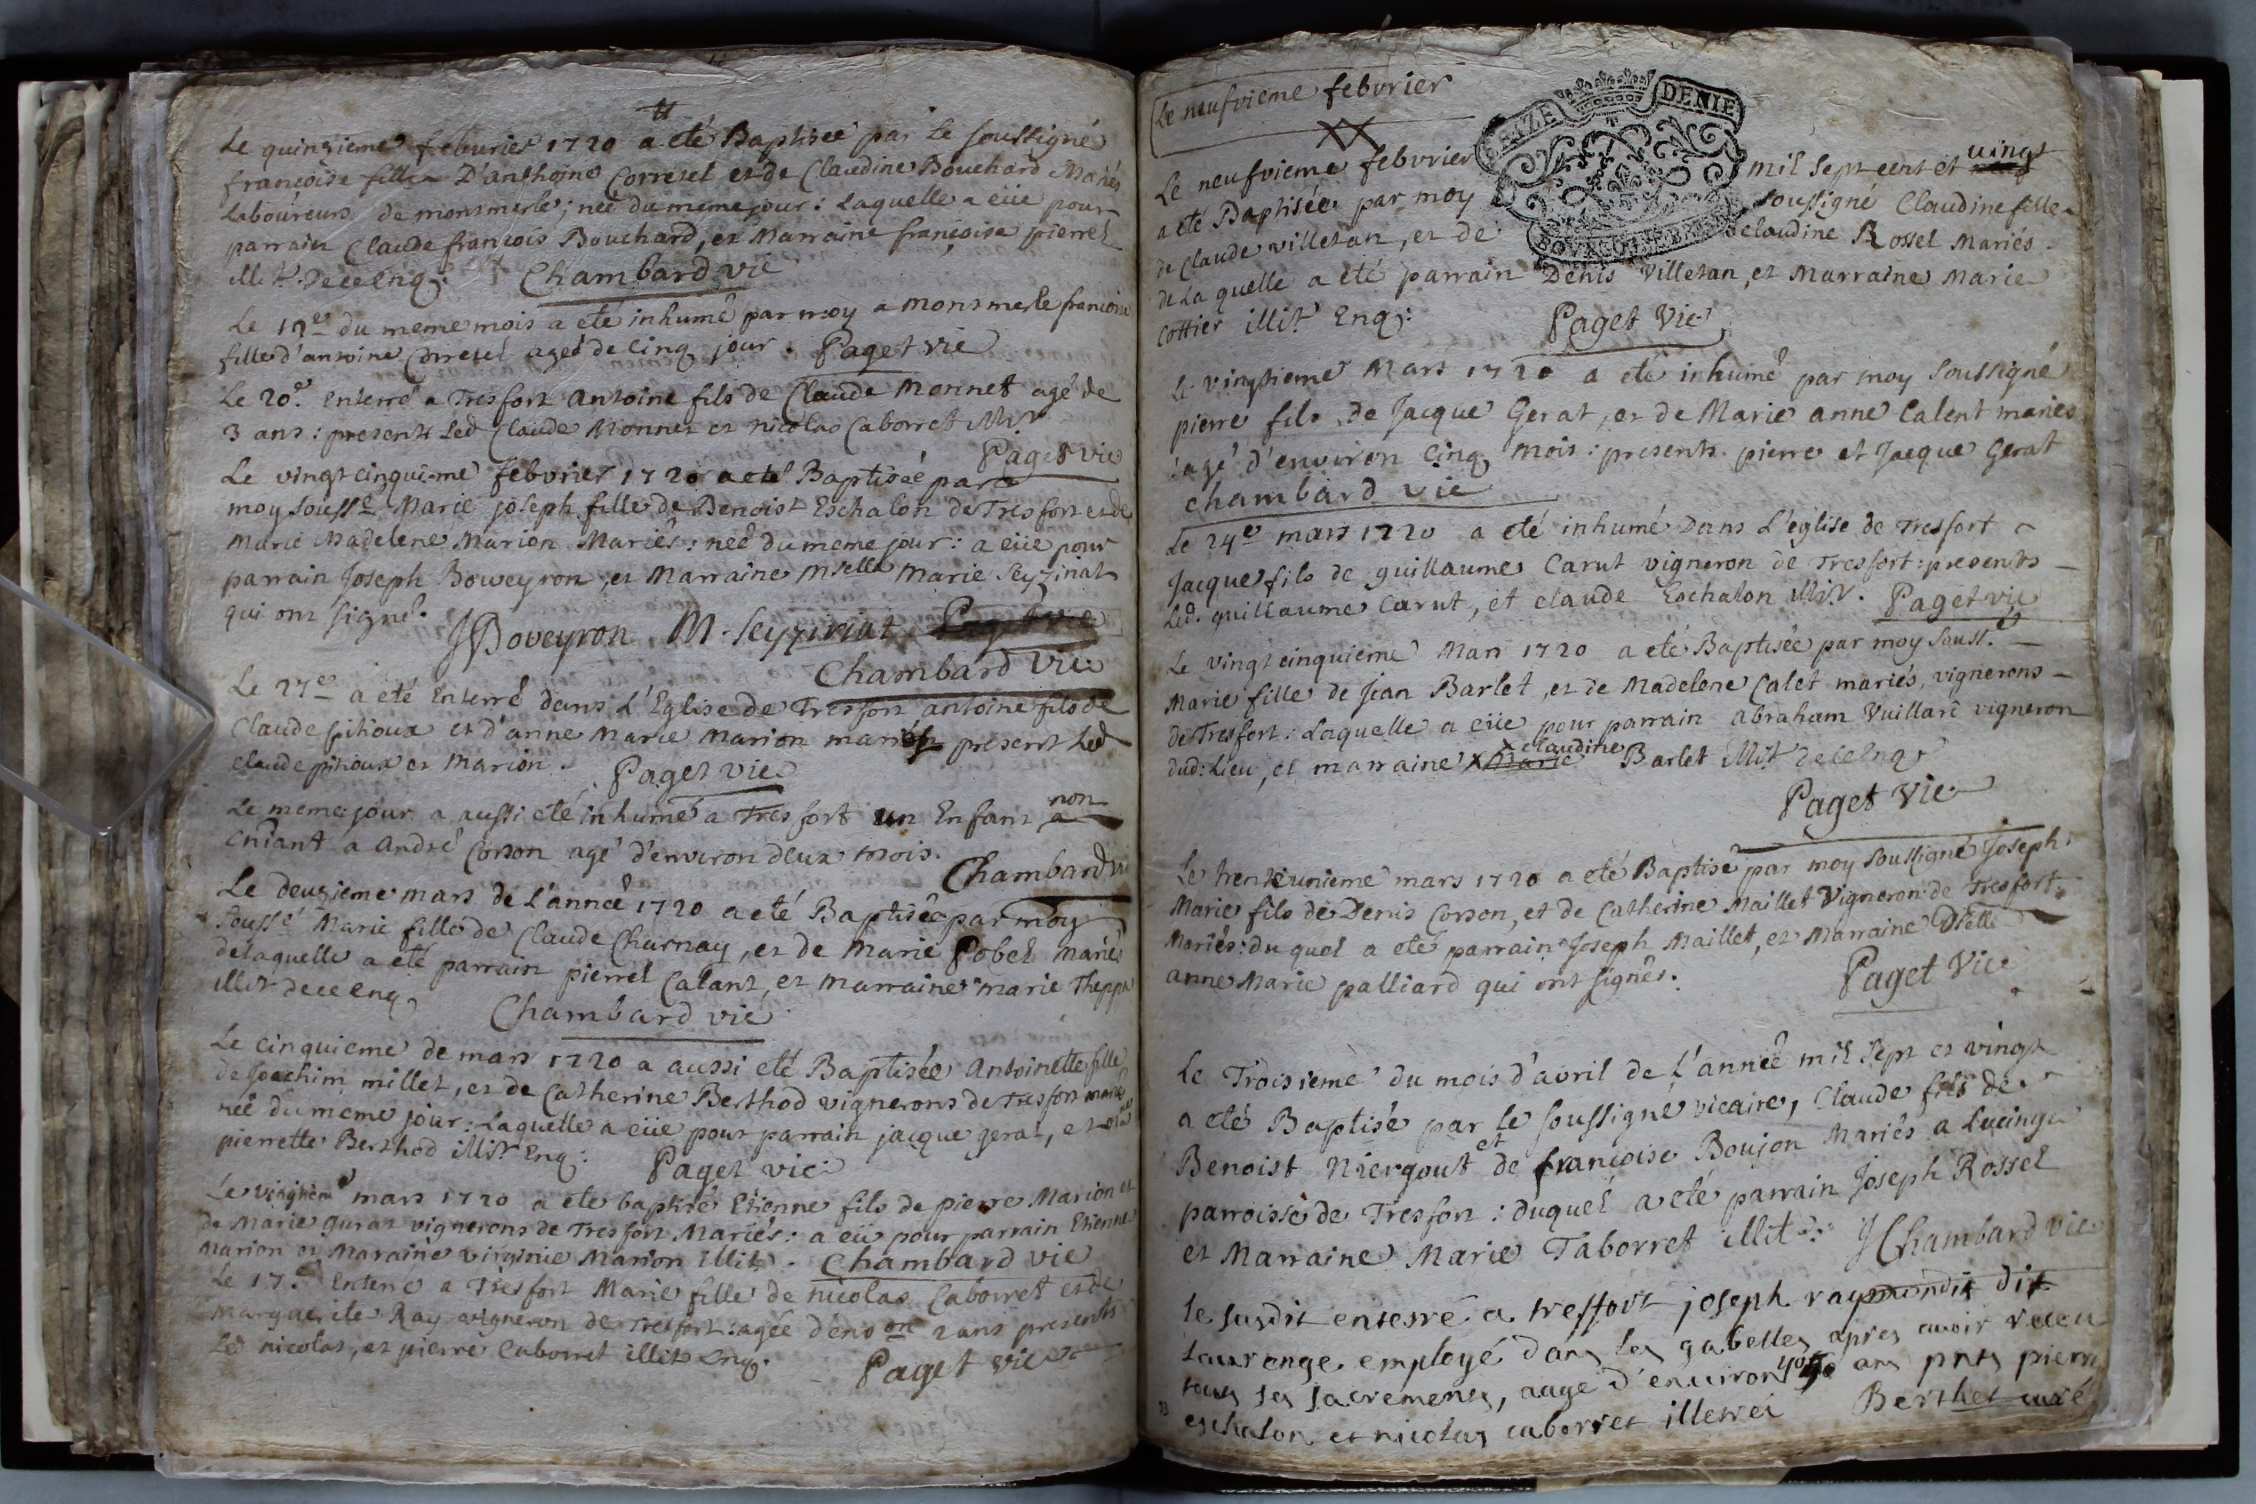 Le quinzieme febvrier 1720 a eté Baptisee par le soussigné
francoise fille D'anthoine Corretel et de Claudine Bouchard Mariés
Laboureurs de monsmerle; neé du meme jour: Laquelle a eüe pour
parrain Claude françois Bouchard, et Marraine françoise pierrel
illit. De ce Enq. Chambard vic
Le 19e du meme mois a eté inhumé par moy a Monsmerle francoise
fille d'antoine Corretel ageé de Cinq jour. Paget vic
Le 20e. Enterré a Tresfort Antoine fils de Claude Monnet agé de
3 ans: presents Led Claude Monnet et nicolas Caborret illit
Paget vic
Le vingt cinquieme febvrier 1720 a eté Baptiseé par
moy souss. Marie joseph fille de Benoist Eschalon de Tresfort et de
Marie Madelene Marion Mariés: neé du meme jour: a eüe pour
parrain Joseph Boweyron, et Marraine Mselle Marie Seyzinat
qui ont signé. JBoveyron M. Seyziriat Paget vic
Chambard vic
Le 27e a eté Enterré dans L'Eglise de Tresfort antoine fils de
Claude pitioux et d'anne Marie Marion mariés present Led
claude pitioux et Marion. Paget vic
Le meme jour a aussi eté inhumé a Tresfort un Enfant non
a André Corson agé d'environ deux mois.
Chambard vic
Le deuzieme mars de L'anneé 1720 a eté Baptiseé par moy
Soussé Marie fille de Claude Charnay, et de Marie Pobel Mariés
delaquelle a eté parrain pierrel Calant, et Marraine marie Theppe
illit de ce enq Chambard vic
Le cinquieme de mars 1720 a aussi eté Baptiseé Antoinette fille
de Joachim millet, et de Catherine Berthod vignerons de Tresfort mariés
neé du meme jour: Laquelle a eüe pour parrain jacque gerat, et
pierrette Berthod illit Enq: Paget vic:
Le vingtieme mars 1720 a eté baptisé Etienne fils de pierre Marion et
de Marie gurat vignerons de Tresfort Mariés: a eü pour parrain Etienne
Marion et Maraine virginie Marion illit. Chambard vic
Le 17e Enterré a Tresfort Marie fille de nicolas Caborret et de
Marguerite Ray vigneron de Tresfort: ageé d'environ 2 ans presents
Led nicolas, et pierre Caborret illit Enq. Paget vic
Le neufvieme febvrier
SEIZE DENIE
BOURGOGNE
Le neufvieme febvrier mil sept cent et vingt
a eté Baptiseé par moy soussigné Claudine fille
de Claude villetan, et de claudine Rossel Mariés
de La quelle a eté parrain Denis Villetan, et Marraine Marie
Cottier illit Enq: Paget Vic
Le vingtieme Mars 1720 a eté inhumé par moy soussigné
pierre fils de Jacque Gerat, et de Marie anne Calent mariés
agé d'environ Cinq mois: presents pierre et Jacque Gerat
chambard vic
Le 24e mars 1720 a eté inhumé Dans L'église de Tresfort
Jacque fils de guillaume Carut vigneron de Tresfort: presents
Led. guillaume Carut, et claude Eschalon illit. Paget vic
Le vingt cinquieme Mars 1720 a eté Baptiseé par moy souss.é
Marie fille de Jean Barlet, et de Madelene Calet mariés, vignerons
de Tresfort: Laquelle a eüe pour parrain abraham Vuillare vigneron
dud: Lieu, et marraine Marie claudine Barlet illit de ce Enq
Paget Vic
Le trenteunieme mars 1720 a eté Baptisé par moy soussigné Joseph
Marie fils de Denis Corson, et de Catherine Maillet Vigneron de Tresfort
Mariés: du quel a eté parrain Joseph Maillet, et Marraine Dselle
anne Marie palliard qui ont signés. Paget Vic
Le Troisieme du mois d'avril de L'anneé mil sept et vingt
a eté Baptisé par le soussigné vicaire, Claude fils de
Benoist Niergout et de françoise Boujon Mariés a Lucingy
parroisse de Tresfort: duquel a eté parrain Joseph Rossel
et Marraine Marie Taborret illit. JChambard vic
le susdit enterré a treffort joseph raymondit dit
laurenge employé dans les gabelles apres avoir receu
tous ses sacrements, aage d'environ 40 ans pnts pierre
eschalon et nicolas caborret illetrés Berthet curé